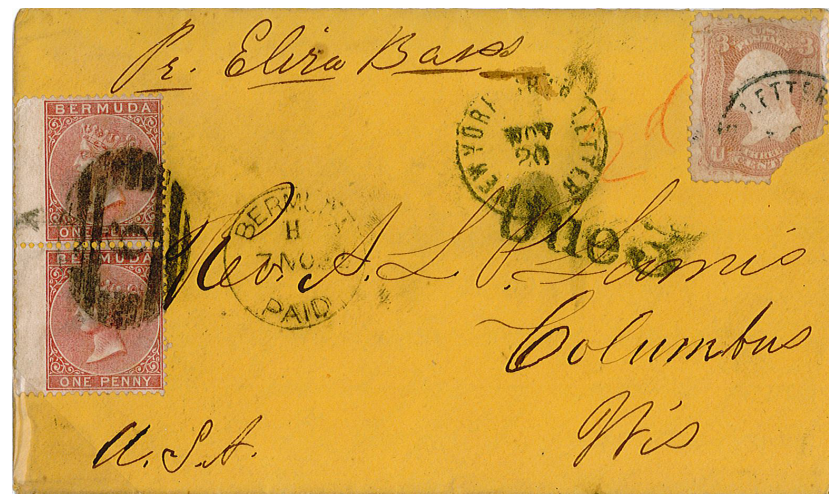 Pr. Eliza Bass
BERMUDA
ONE PENNY
BERMUDA
ONE PENNY
BERMUDA
H
7 NO
PAID
NEW YORK SHIP LETTER
NOV
20
3 3
U
THREE CENTS
LETTER
2d
Due
Rev. A. L. P. Loomis
Columbus
Wis
U.S.A.